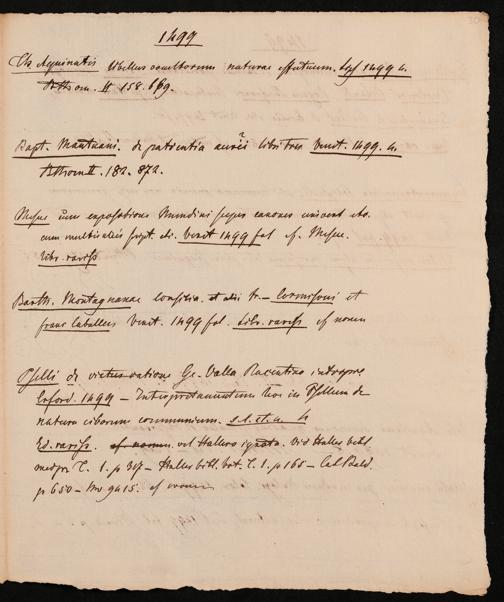 1499
Th. Aquinatis libellus occultorum naturae effectuum. Lips 1499 4.
158. 669.
Bapt. Mantuani. de patientia aurei libri tres Venet. 1499. 4.
182. 872.
Mesue cum expositione Mundini super canones univers. etc.
cum multis aliis script. Venet 1499 fol cf. Mesue.
libr. rariss
Barth. Montagnanae consilia. et alii tr. — Cermisoni et
franc Caballus Venet. 1499 fol. libr. rariss cf nomen
Pselli de victus ratione Ge. Valla Placentino interprete
Erford. 1499 — in Psellum de
natura ciborum communium. s. l. et a. 4
Ed. rariss. cf nomen. vel Hallero ignota. Vid Haller bibl
med pr. T. 1. p — Haller bibl. bot. T. 1. p 165 — Cal Bald.
p 650 — No 9415. cf